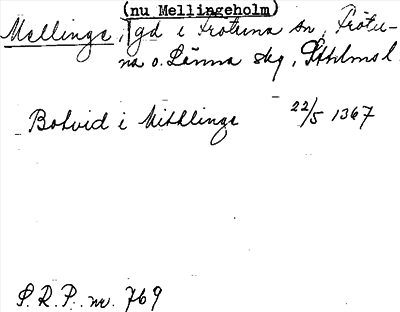 (nu Mellingeholm)
Mellinge, gd i Frötuna sn, Frötu-
na o. Länna skg, Sthlms l.
Botvid i Mithlinge 22/5 1367
S.R.P. nr. 769